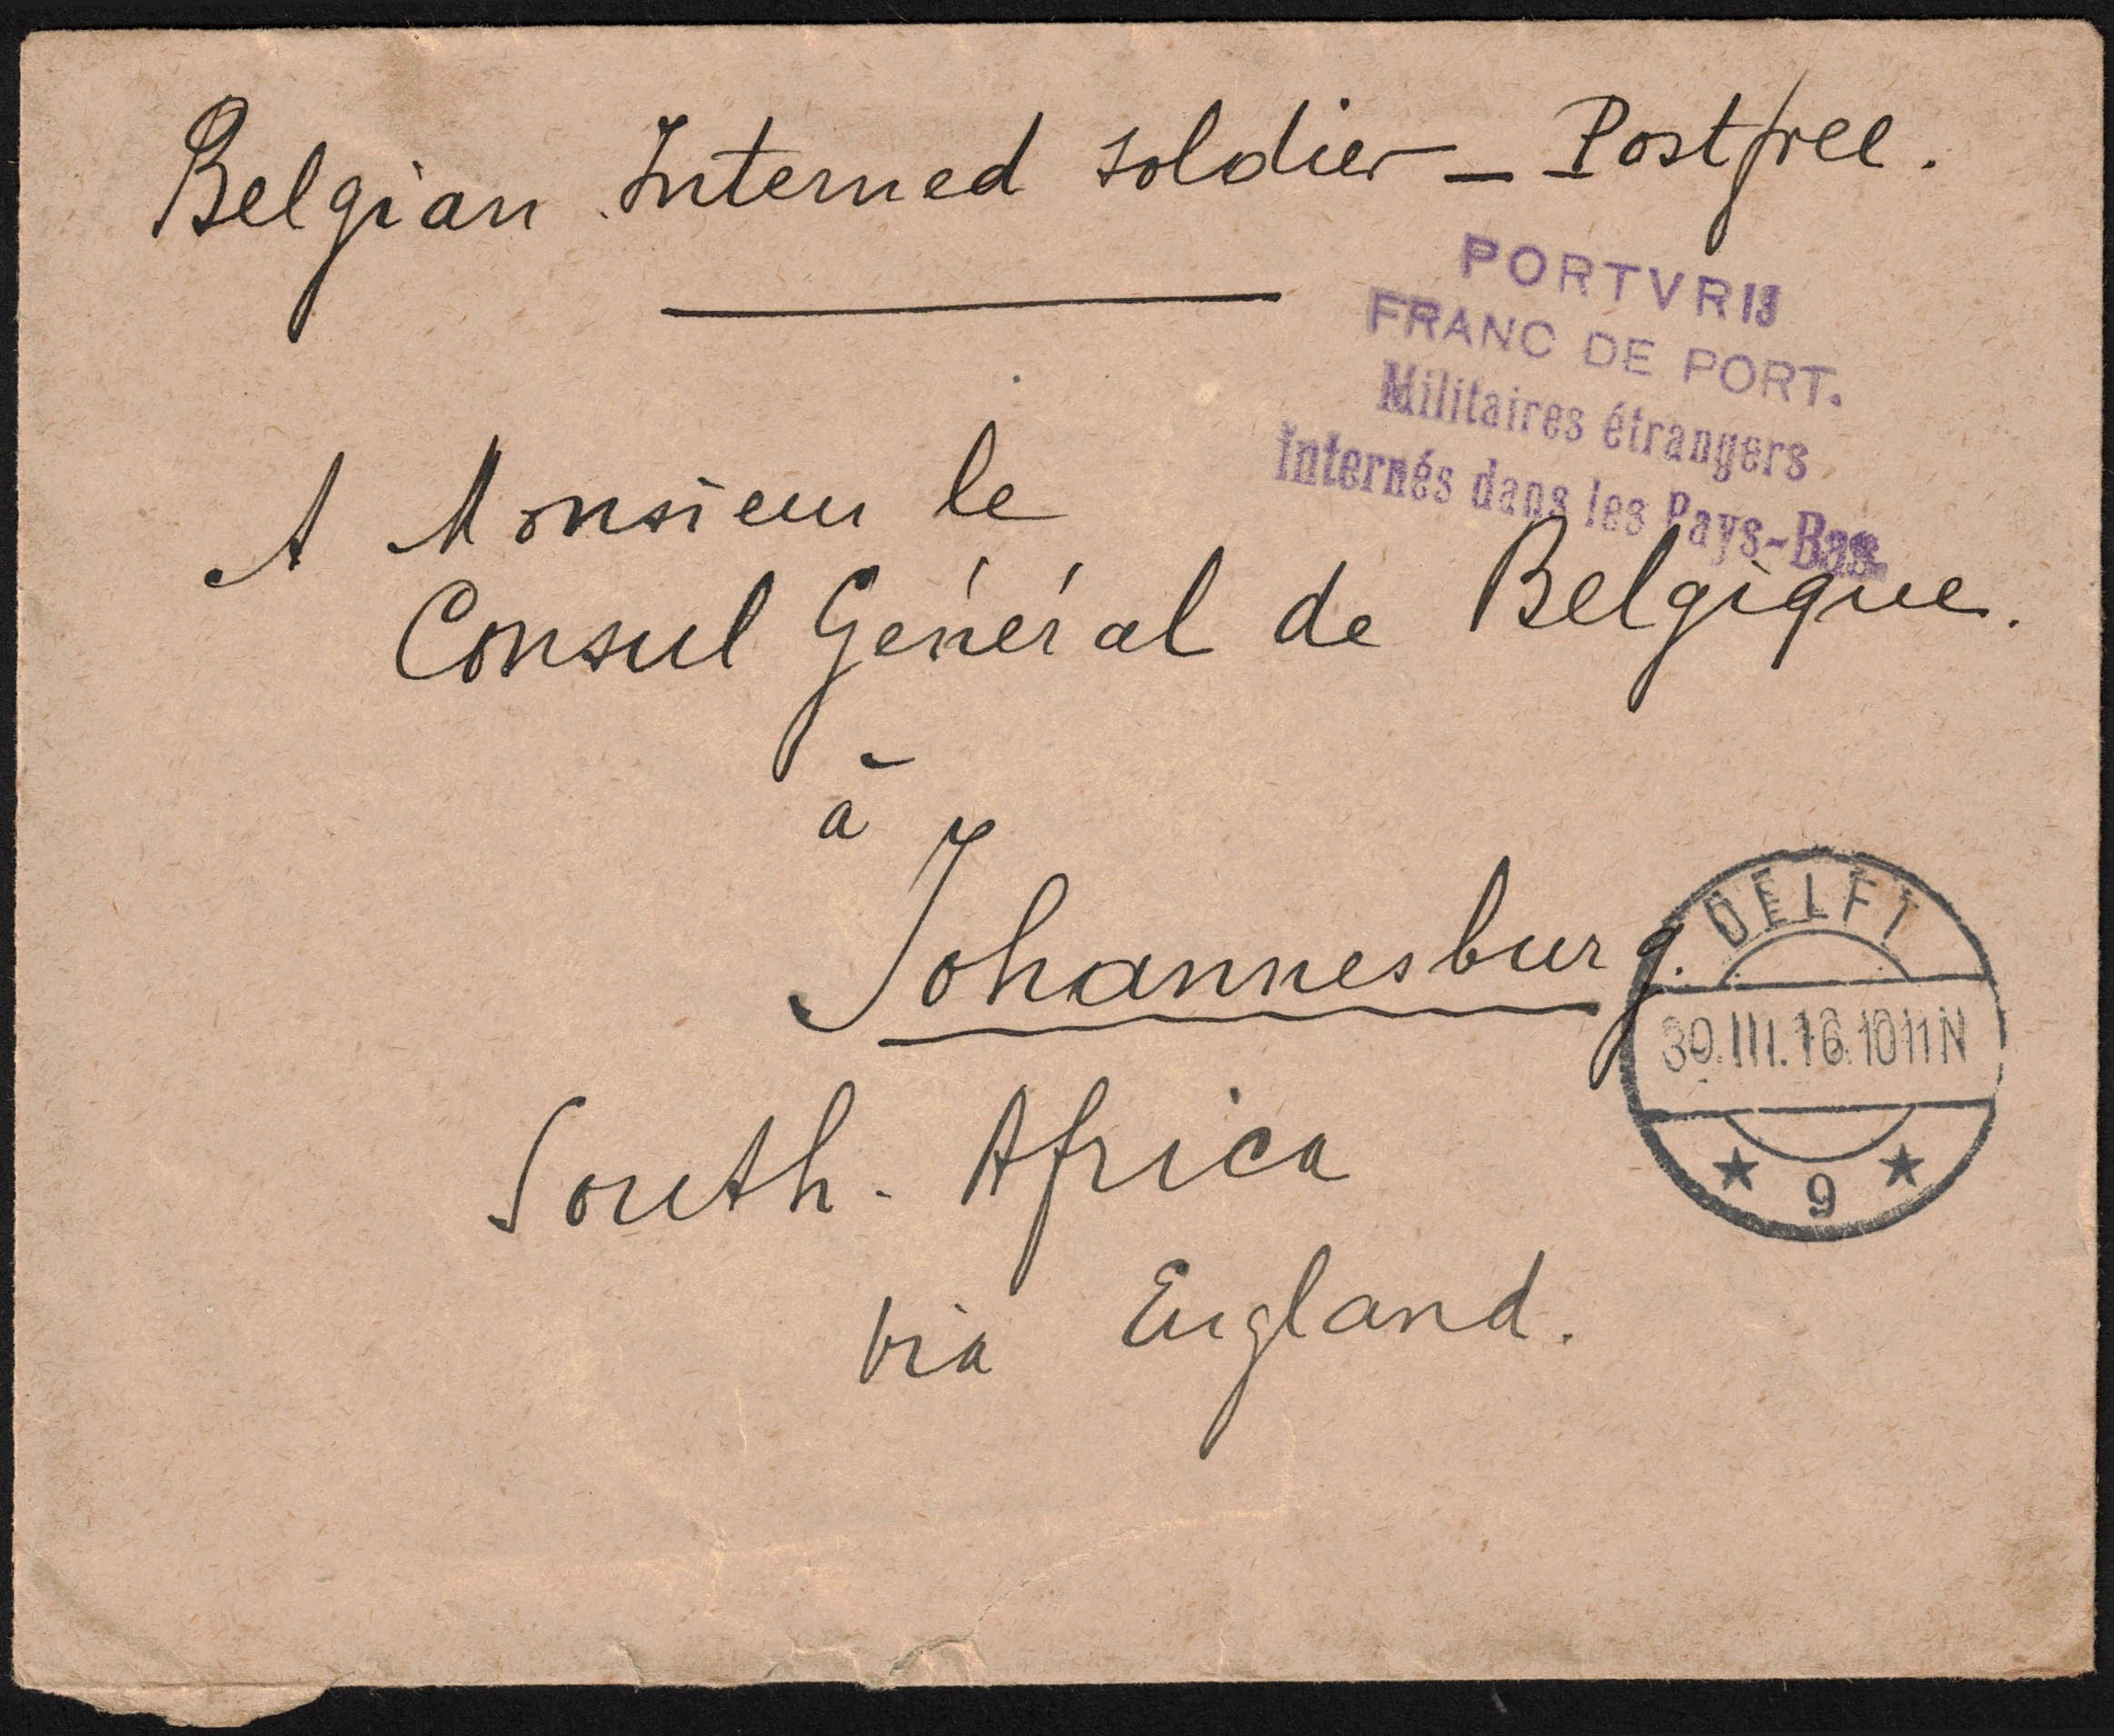 Belgian Interned soldier – Postfree.
PORTVRIJ
FRANC DE PORT.
Militaires étrangers
internés dans les Pays-Bas.
A Monsieur le
Consul Général de Belgique.
à
Johannesburg.
South-Africa
via England.
DELFT
30.III.16.1011N
★ 9 ★